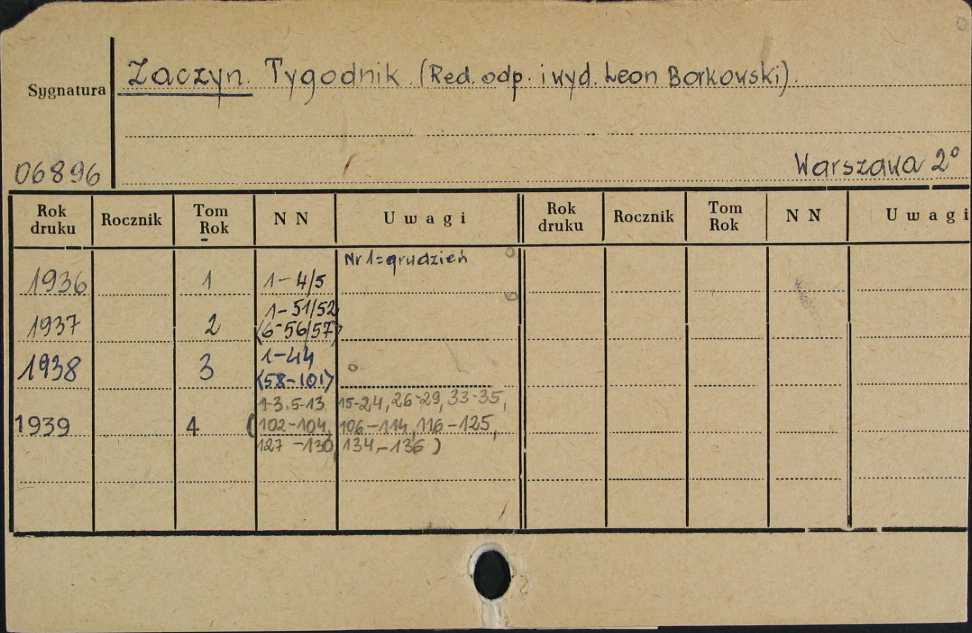 Zaczyn. Tygodnik (Red. odp. i wyd. Leon Borkowski).
Sygnatura
06896
Warszawa 2°
Rok druku Rocznik Tom Rok N N Uwagi Rok druku Rocznik Tom Rok N N Uwagi
Nr 1=grudzień
1936 1 1-4/5
1-51/52
1937 2 (6-56/57)
1938 3 1-44
(58-101)
1-3, 5-13, 15-24, 26-29, 33-35,
1939 4 (102-104, 106-114, 116-125,
127-130, 134-136)